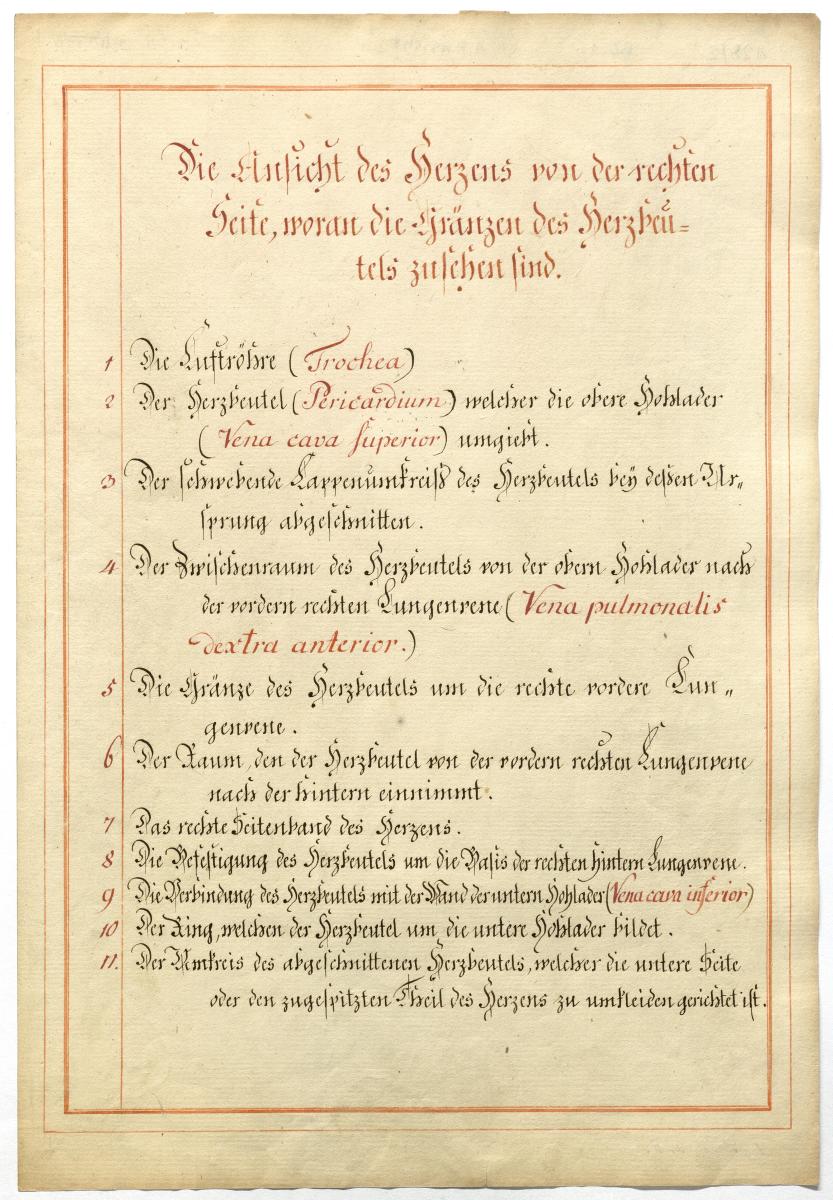 Die Ansicht des Herzens von der rechten
Seite, woran die Gränzen des Herzbeu=
tels zusehen sind.
1 Die Luftröhre (Trochea)
2 Der Herzbeutel (Pericardium) welcher die obere Hohlader
(Vena cava superior) umgiebt.
3 Der schwebende Lappenumkreiß des Herzbeutels beÿ deßen Ur„
sprung abgeschnitten.
4 Der Zwischenraum des Herzbeutels von der obern Hohlader nach
der vordern rechten Lungenvene (Vena pulmonalis
dextra anterior.)
5 Die Gränze des Herzbeutels um die rechte vordere Lun„
genvene.
6 Der Raum, den der Herzbeutel von der vordern rechten Lungenvene
nach der hintern einnimmt.
7 Das rechte Seitenband des Herzens.
8 Die Befestigung des Herzbeutels um die Basis der rechten hintern Lungenvene.
9 Die Verbindung des Herzbeutels mit der Wand der untern Hohlader (Vena cava inferior)
10 Der Ring, welchen der Herzbeutel um die untere Hohlader bildet.
11. Der Umkreis des abgeschnittenen Herzbeutels, welcher die untere Seite
oder den zugespitzten Theil des Herzens zu umkleiden gerichtet ist.